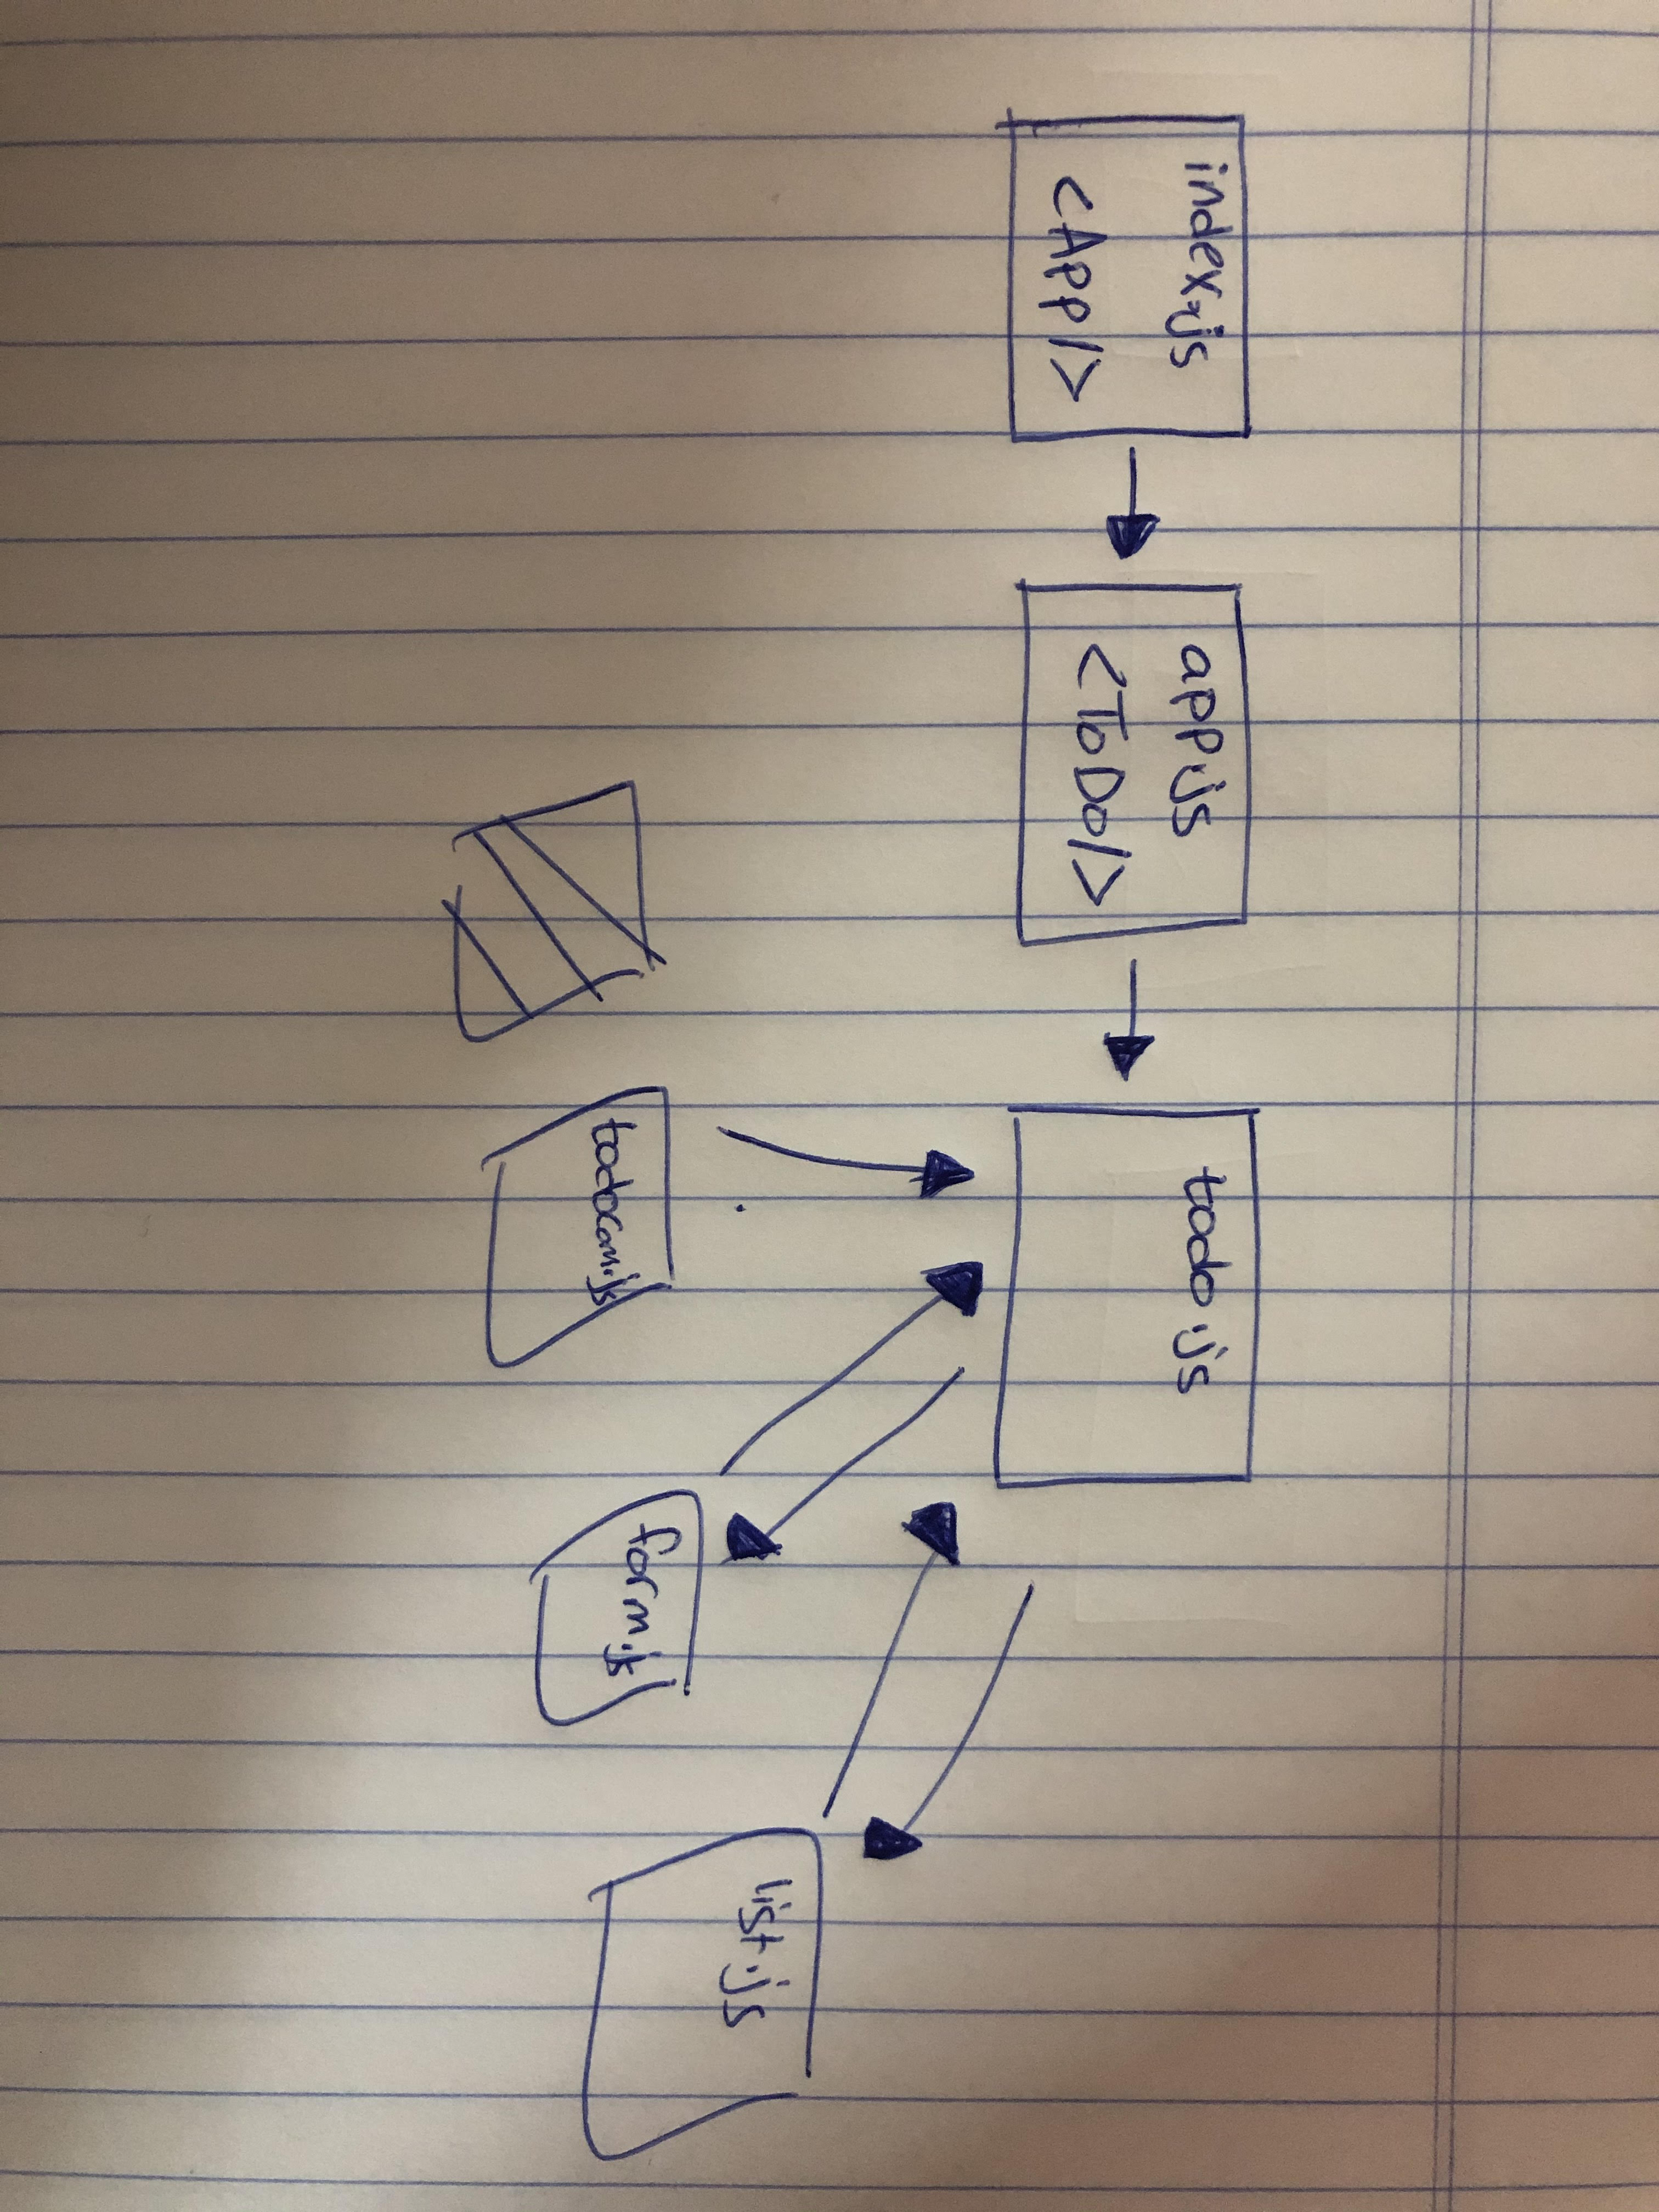 index.js
<App/>
app.js
<ToDo/>
todo.js
form.js
list.js